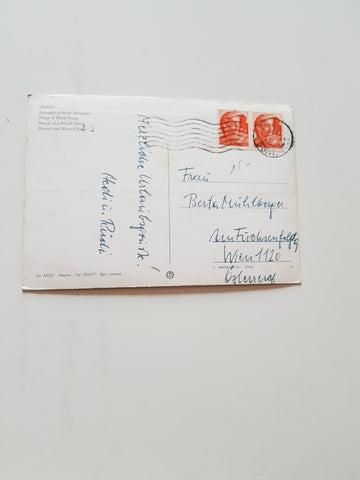 Spiaggia e Hotel Spiaggia
Plage et Hôtel Plage
Beach and Beach Hotel
Strand und Strand Hotel
Herzliche Urlaubsgrüße!
Hedi u. Rudi
Frau
Berta Mühlberger
Am Fuchsenfeld
Wien 1120
Österreich
Ed. ARDO - Mestre - Tel.